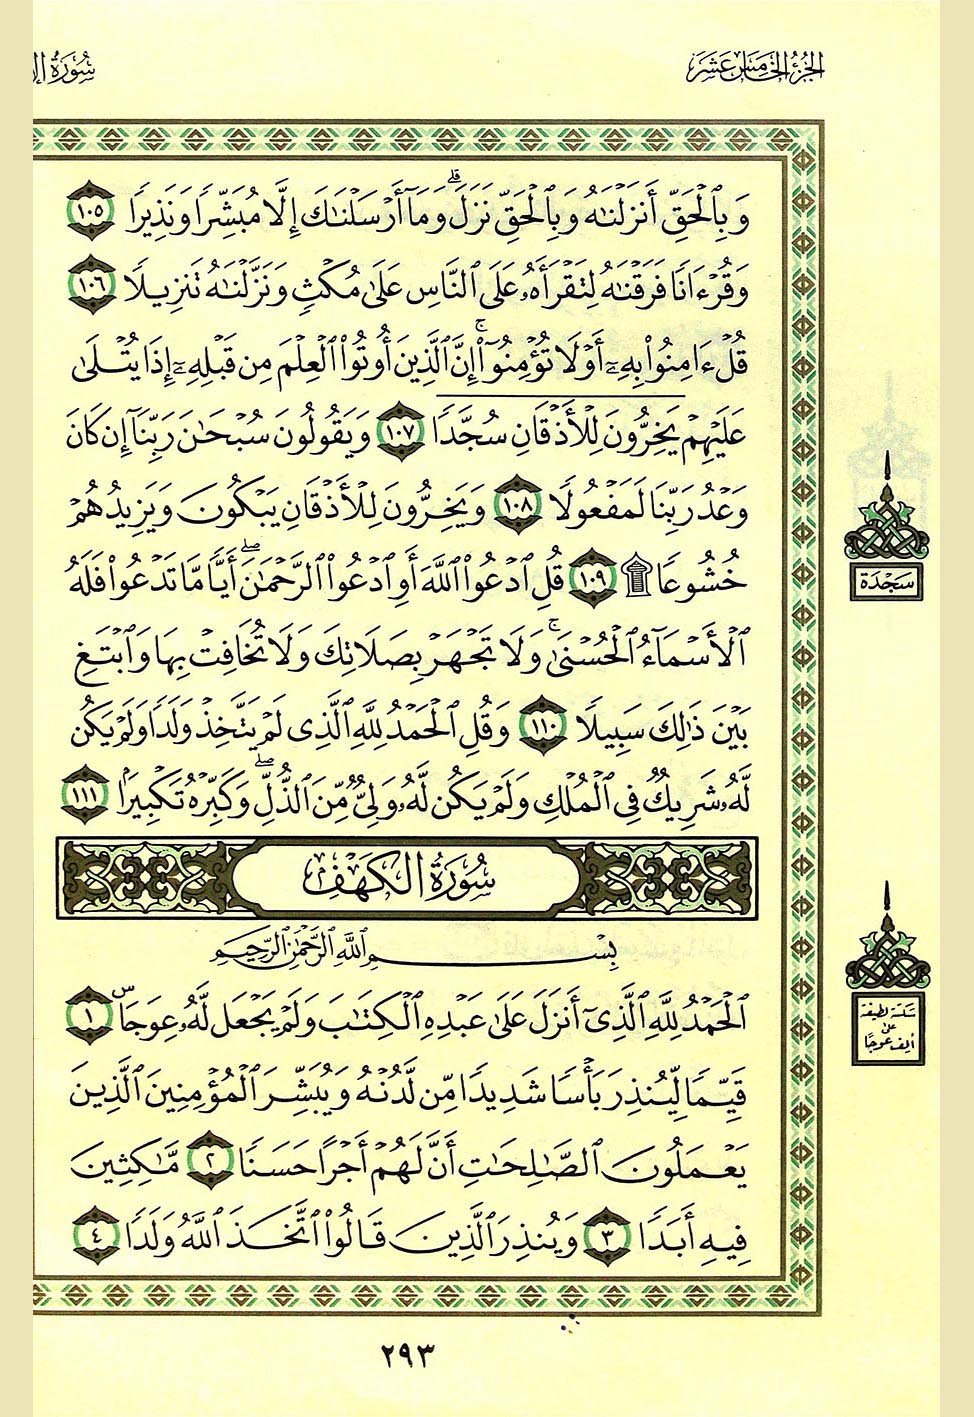 الجزء الخامس عشر
سورة الإ
وَبِٱلْحَقِّ أَنزَلْنَٰهُ وَبِٱلْحَقِّ نَزَلَ ۗ وَمَآ أَرْسَلْنَٰكَ إِلَّا مُبَشِّرًا وَنَذِيرًا ١٠٥
وَقُرْءَانًا فَرَقْنَٰهُ لِتَقْرَأَهُۥ عَلَى ٱلنَّاسِ عَلَىٰ مُكْثٍ وَنَزَّلْنَٰهُ تَنزِيلًا ١٠٦
قُلْ ءَامِنُوا۟ بِهِۦٓ أَوْ لَا تُؤْمِنُوٓا۟ ۚ إِنَّ ٱلَّذِينَ أُوتُوا۟ ٱلْعِلْمَ مِن قَبْلِهِۦٓ إِذَا يُتْلَىٰ
عَلَيْهِمْ يَخِرُّونَ لِلْأَذْقَانِ سُجَّدًا ١٠٧ وَيَقُولُونَ سُبْحَٰنَ رَبِّنَآ إِن كَانَ
وَعْدُ رَبِّنَا لَمَفْعُولًا ١٠٨ وَيَخِرُّونَ لِلْأَذْقَانِ يَبْكُونَ وَيَزِيدُهُمْ
خُشُوعًا ۩ ١٠٩ قُلِ ٱدْعُوا۟ ٱللَّهَ أَوِ ٱدْعُوا۟ ٱلرَّحْمَٰنَ ۖ أَيًّا مَّا تَدْعُوا۟ فَلَهُ
ٱلْأَسْمَآءُ ٱلْحُسْنَىٰ ۚ وَلَا تَجْهَرْ بِصَلَاتِكَ وَلَا تُخَافِتْ بِهَا وَٱبْتَغِ
بَيْنَ ذَٰلِكَ سَبِيلًا ١١٠ وَقُلِ ٱلْحَمْدُ لِلَّهِ ٱلَّذِى لَمْ يَتَّخِذْ وَلَدًا وَلَمْ يَكُن
لَّهُۥ شَرِيكٌ فِى ٱلْمُلْكِ وَلَمْ يَكُن لَّهُۥ وَلِىٌّ مِّنَ ٱلذُّلِّ ۖ وَكَبِّرْهُ تَكْبِيرًۢا ١١١
سُورَةُ الكَهْفِ
بِسْمِ ٱللَّهِ ٱلرَّحْمَٰنِ ٱلرَّحِيمِ
ٱلْحَمْدُ لِلَّهِ ٱلَّذِىٓ أَنزَلَ عَلَىٰ عَبْدِهِ ٱلْكِتَٰبَ وَلَمْ يَجْعَل لَّهُۥ عِوَجَاۜ ١
قَيِّمًا لِّيُنذِرَ بَأْسًا شَدِيدًا مِّن لَّدُنْهُ وَيُبَشِّرَ ٱلْمُؤْمِنِينَ ٱلَّذِينَ
يَعْمَلُونَ ٱلصَّٰلِحَٰتِ أَنَّ لَهُمْ أَجْرًا حَسَنًا ٢ مَّٰكِثِينَ
فِيهِ أَبَدًا ٣ وَيُنذِرَ ٱلَّذِينَ قَالُوا۟ ٱتَّخَذَ ٱللَّهُ وَلَدًا ٤
سَجْدَة
سكتة لطيفة
على
ألف عوجا
٢٩٣